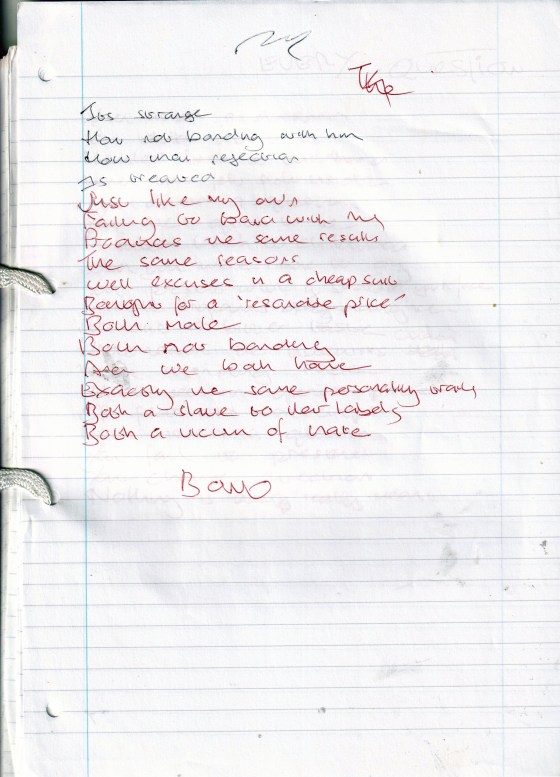 Its strange
How not bonding with him
How that rejection
Is treated
Just like my own
Failing to bond with my
Produces the same results
The same reasons
Well excuses in a cheap suit
Bought for a 'resonable price'
Both male
Both not bonding
And we both have
Exactly the same personality traits
Both a slave to their labels
Both a victim of hate